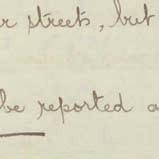 r streets, but
be reported a